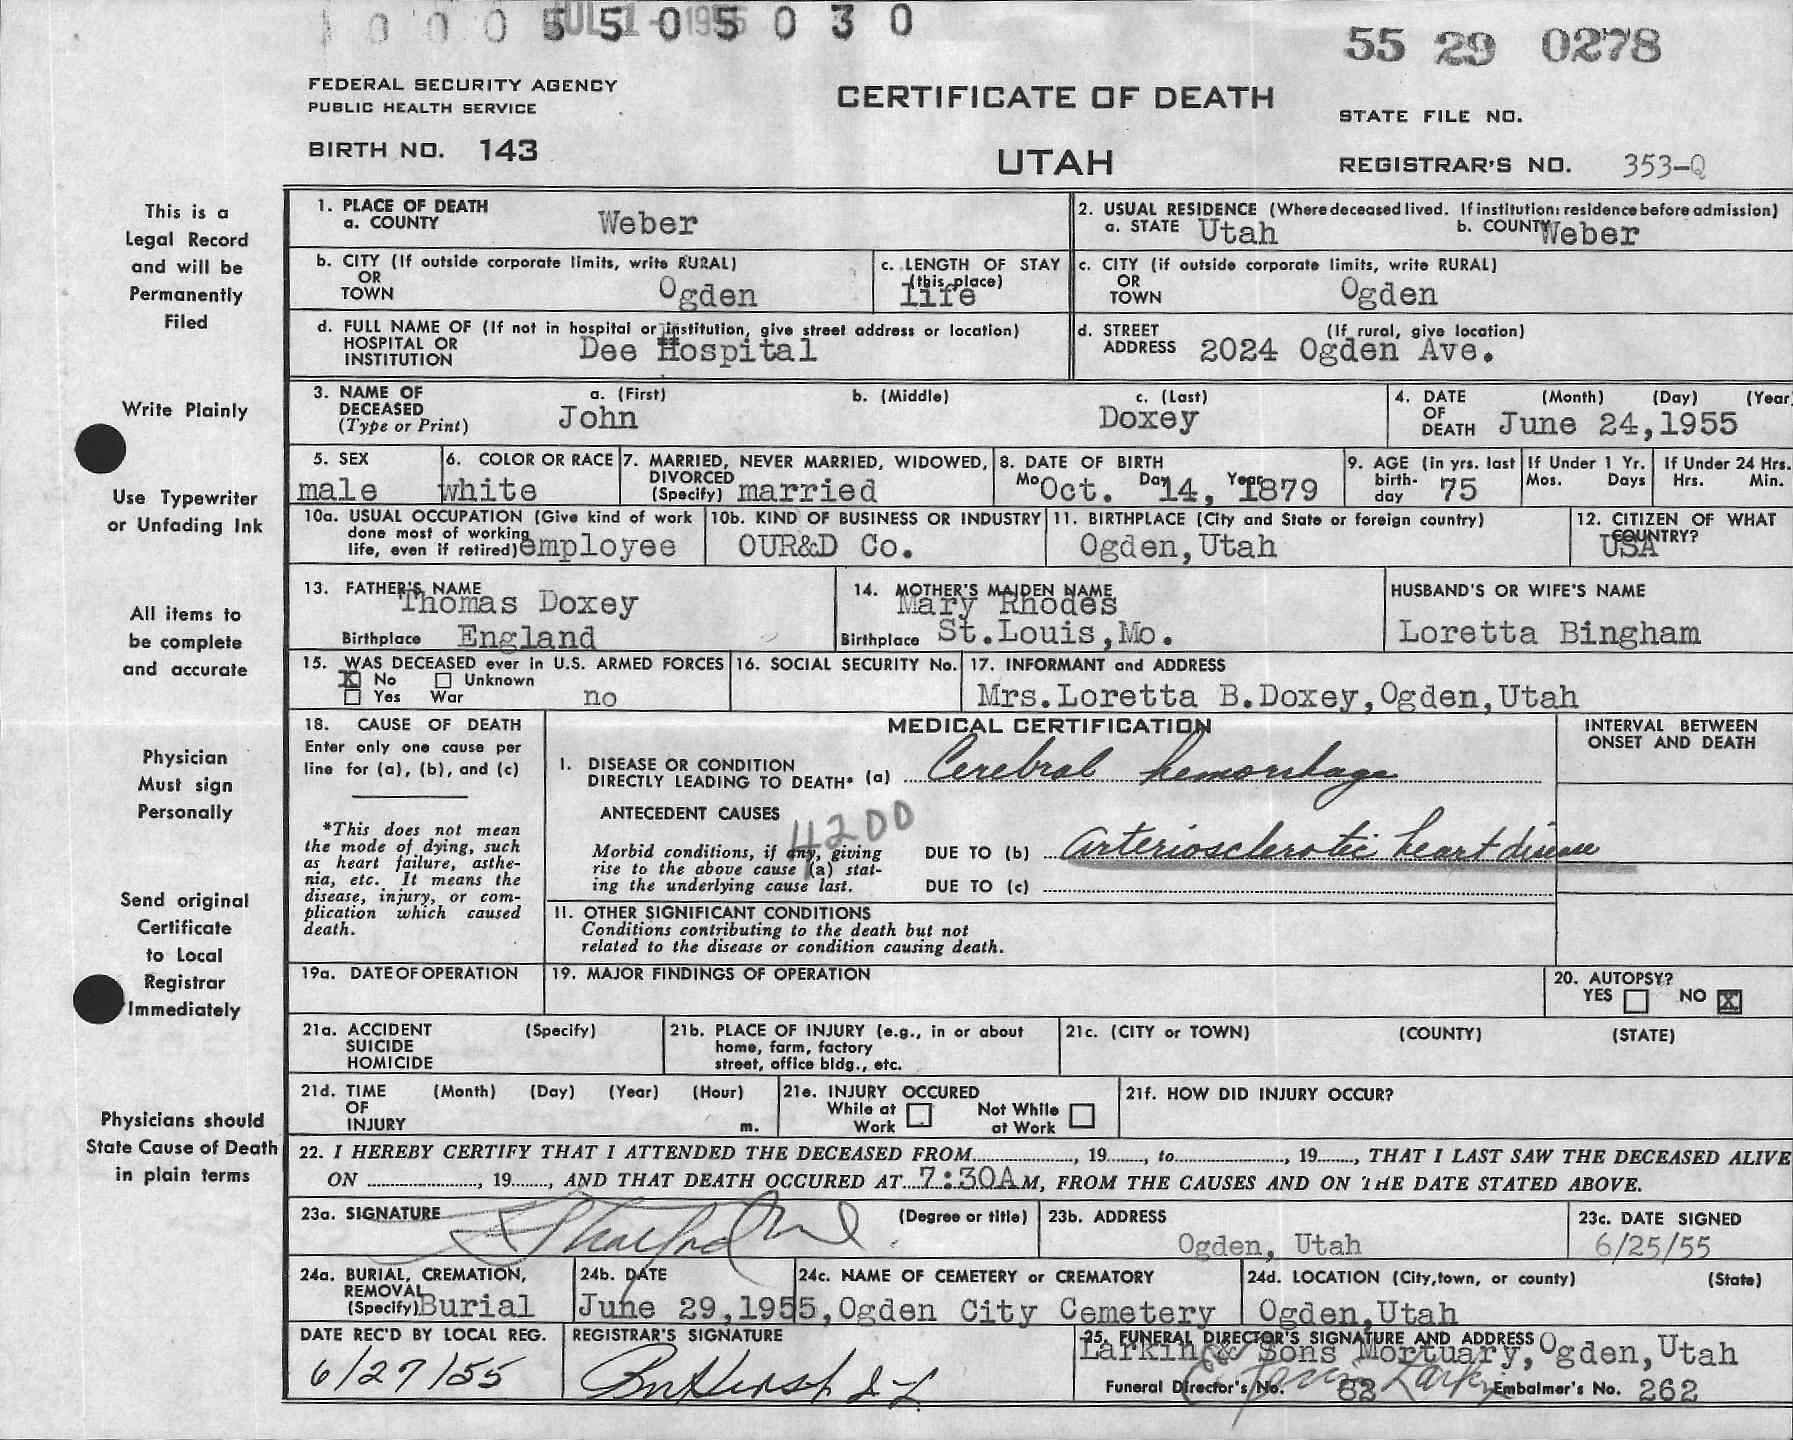 1 0 0 0 5 5 0 5 0 3 0
JUL 1 - 1955
55 29 0278
FEDERAL SECURITY AGENCY
PUBLIC HEALTH SERVICE
BIRTH NO. 143
CERTIFICATE OF DEATH
UTAH
STATE FILE NO.
REGISTRAR'S NO. 353-Q
This is a
Legal Record
and will be
Permanently
Filed
Write Plainly
Use Typewriter
or Unfading Ink
All items to
be complete
and accurate
Physician
Must sign
Personally
Send original
Certificate
to Local
Registrar
Immediately
Physicians should
State Cause of Death
in plain terms
1. PLACE OF DEATH
a. COUNTY Weber
2. USUAL RESIDENCE (Where deceased lived. If institution: residence before admission)
a. STATE Utah b. COUNTY Weber
b. CITY (If outside corporate limits, write RURAL)
OR
TOWN Ogden
c. LENGTH OF STAY
(this place)
life
c. CITY (if outside corporate limits, write RURAL)
OR
TOWN Ogden
d. FULL NAME OF (If not in hospital or institution, give street address or location)
HOSPITAL OR
INSTITUTION Dee Hospital
d. STREET (If rural, give location)
ADDRESS 2024 Ogden Ave.
3. NAME OF DECEASED
(Type or Print)
a. (First) b. (Middle) c. (Last)
John Doxey
4. DATE OF DEATH (Month) (Day) (Year)
June 24,1955
5. SEX
male
6. COLOR OR RACE
white
7. MARRIED, NEVER MARRIED, WIDOWED,
DIVORCED
(Specify) married
8. DATE OF BIRTH
Mo Oct. Day 14, Year 1879
9. AGE (in yrs. last
birth-
day 75
If Under 1 Yr.
Mos. Days
If Under 24 Hrs.
Hrs. Min.
10a. USUAL OCCUPATION (Give kind of work
done most of working
life, even if retired) employee
10b. KIND OF BUSINESS OR INDUSTRY
OUR&D Co.
11. BIRTHPLACE (City and State or foreign country)
Ogden,Utah
12. CITIZEN OF WHAT
COUNTRY?
USA
13. FATHER'S NAME
Thomas Doxey
Birthplace England
14. MOTHER'S MAIDEN NAME
Mary Rhodes
Birthplace St.Louis,Mo.
HUSBAND'S OR WIFE'S NAME
Loretta Bingham
15. WAS DECEASED ever in U.S. ARMED FORCES
X No Unknown
Yes War no
16. SOCIAL SECURITY No.
17. INFORMANT and ADDRESS
Mrs.Loretta B.Doxey,Ogden,Utah
18. CAUSE OF DEATH
Enter only one cause per
line for (a), (b), and (c)
*This does not mean
the mode of dying, such
as heart failure, asthe-
nia, etc. It means the
disease, injury, or com-
plication which caused
death.
MEDICAL CERTIFICATION
INTERVAL BETWEEN
ONSET AND DEATH
I. DISEASE OR CONDITION
DIRECTLY LEADING TO DEATH* (a) Cerebral hemorrhage
ANTECEDENT CAUSES
4200
Morbid conditions, if any, giving
rise to the above cause (a) stat-
ing the underlying cause last.
DUE TO (b) arteriosclerotic heart disease
DUE TO (c)
II. OTHER SIGNIFICANT CONDITIONS
Conditions contributing to the death but not
related to the disease or condition causing death.
19a. DATE OF OPERATION
19. MAJOR FINDINGS OF OPERATION
20. AUTOPSY?
YES NO X
21a. ACCIDENT (Specify)
SUICIDE
HOMICIDE
21b. PLACE OF INJURY (e.g., in or about
home, farm, factory
street, office bldg., etc.
21c. (CITY or TOWN) (COUNTY) (STATE)
21d. TIME (Month) (Day) (Year) (Hour)
OF
INJURY m.
21e. INJURY OCCURED
While at Work
Not While at Work
21f. HOW DID INJURY OCCUR?
22. I HEREBY CERTIFY THAT I ATTENDED THE DECEASED FROM , 19 , to , 19 , THAT I LAST SAW THE DECEASED ALIVE
ON , 19 , AND THAT DEATH OCCURED AT 7:30A M, FROM THE CAUSES AND ON THE DATE STATED ABOVE.
23a. SIGNATURE (Degree or title)
23b. ADDRESS
Ogden, Utah
23c. DATE SIGNED
6/25/55
24a. BURIAL, CREMATION,
REMOVAL
(Specify) Burial
24b. DATE
June 29,1955,
24c. NAME OF CEMETERY or CREMATORY
Ogden City Cemetery
24d. LOCATION (City,town, or county) (State)
Ogden,Utah
DATE REC'D BY LOCAL REG.
6/27/55
REGISTRAR'S SIGNATURE
25. FUNERAL DIRECTOR'S SIGNATURE AND ADDRESS
Larkin & Sons Mortuary,Ogden,Utah
Funeral Director's No. 62 Embalmer's No. 262